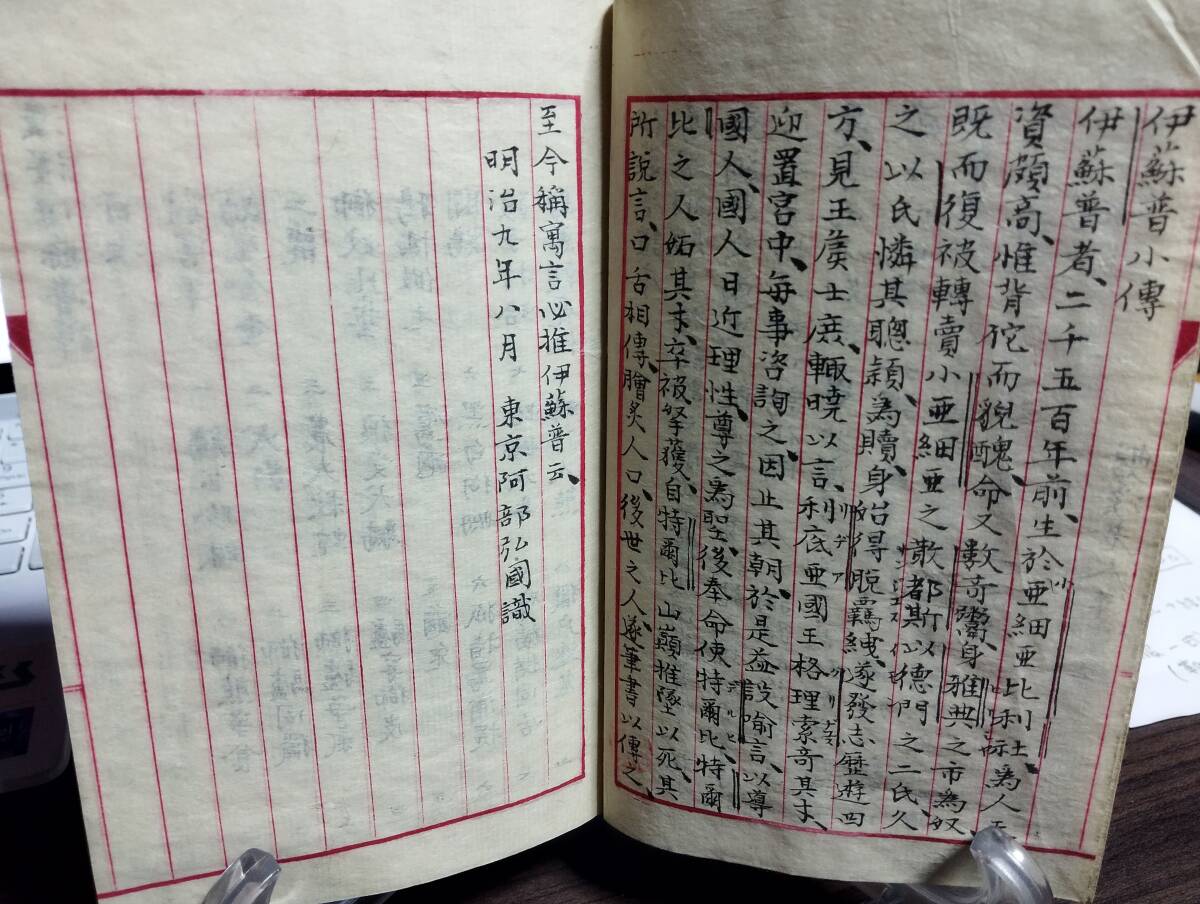 伊蘇普小傳
伊蘇普者、二千五百年前、生於亜細亜比利社、為人天
資頗高、惟背佗而貌醜、命又數奇、鬻身雅典之市為奴、
既而復被轉賣小亜細亜之散都斯以德們之二氏、久
之以氏憐其聰穎、為贖身、始得脫羈絏、遂發志歴遊四
方、見王侯士庶、輒曉以言、利底亜國王格理索奇其才、
迎置宮中、每事咨詢之、因止其朝、於是益設喻言、以導
國人、國人日近理性、尊之為聖、後奉命使特爾比、特爾
比之人妬其才、卒被拏獲、自特爾比山巔推墜以死、其
所說言、口舌相傳、膾炙人口、後世之人、遂筆書以傳之、
至今稱寓言必推伊蘇普云、
明治九年八月 東京阿部弘國識